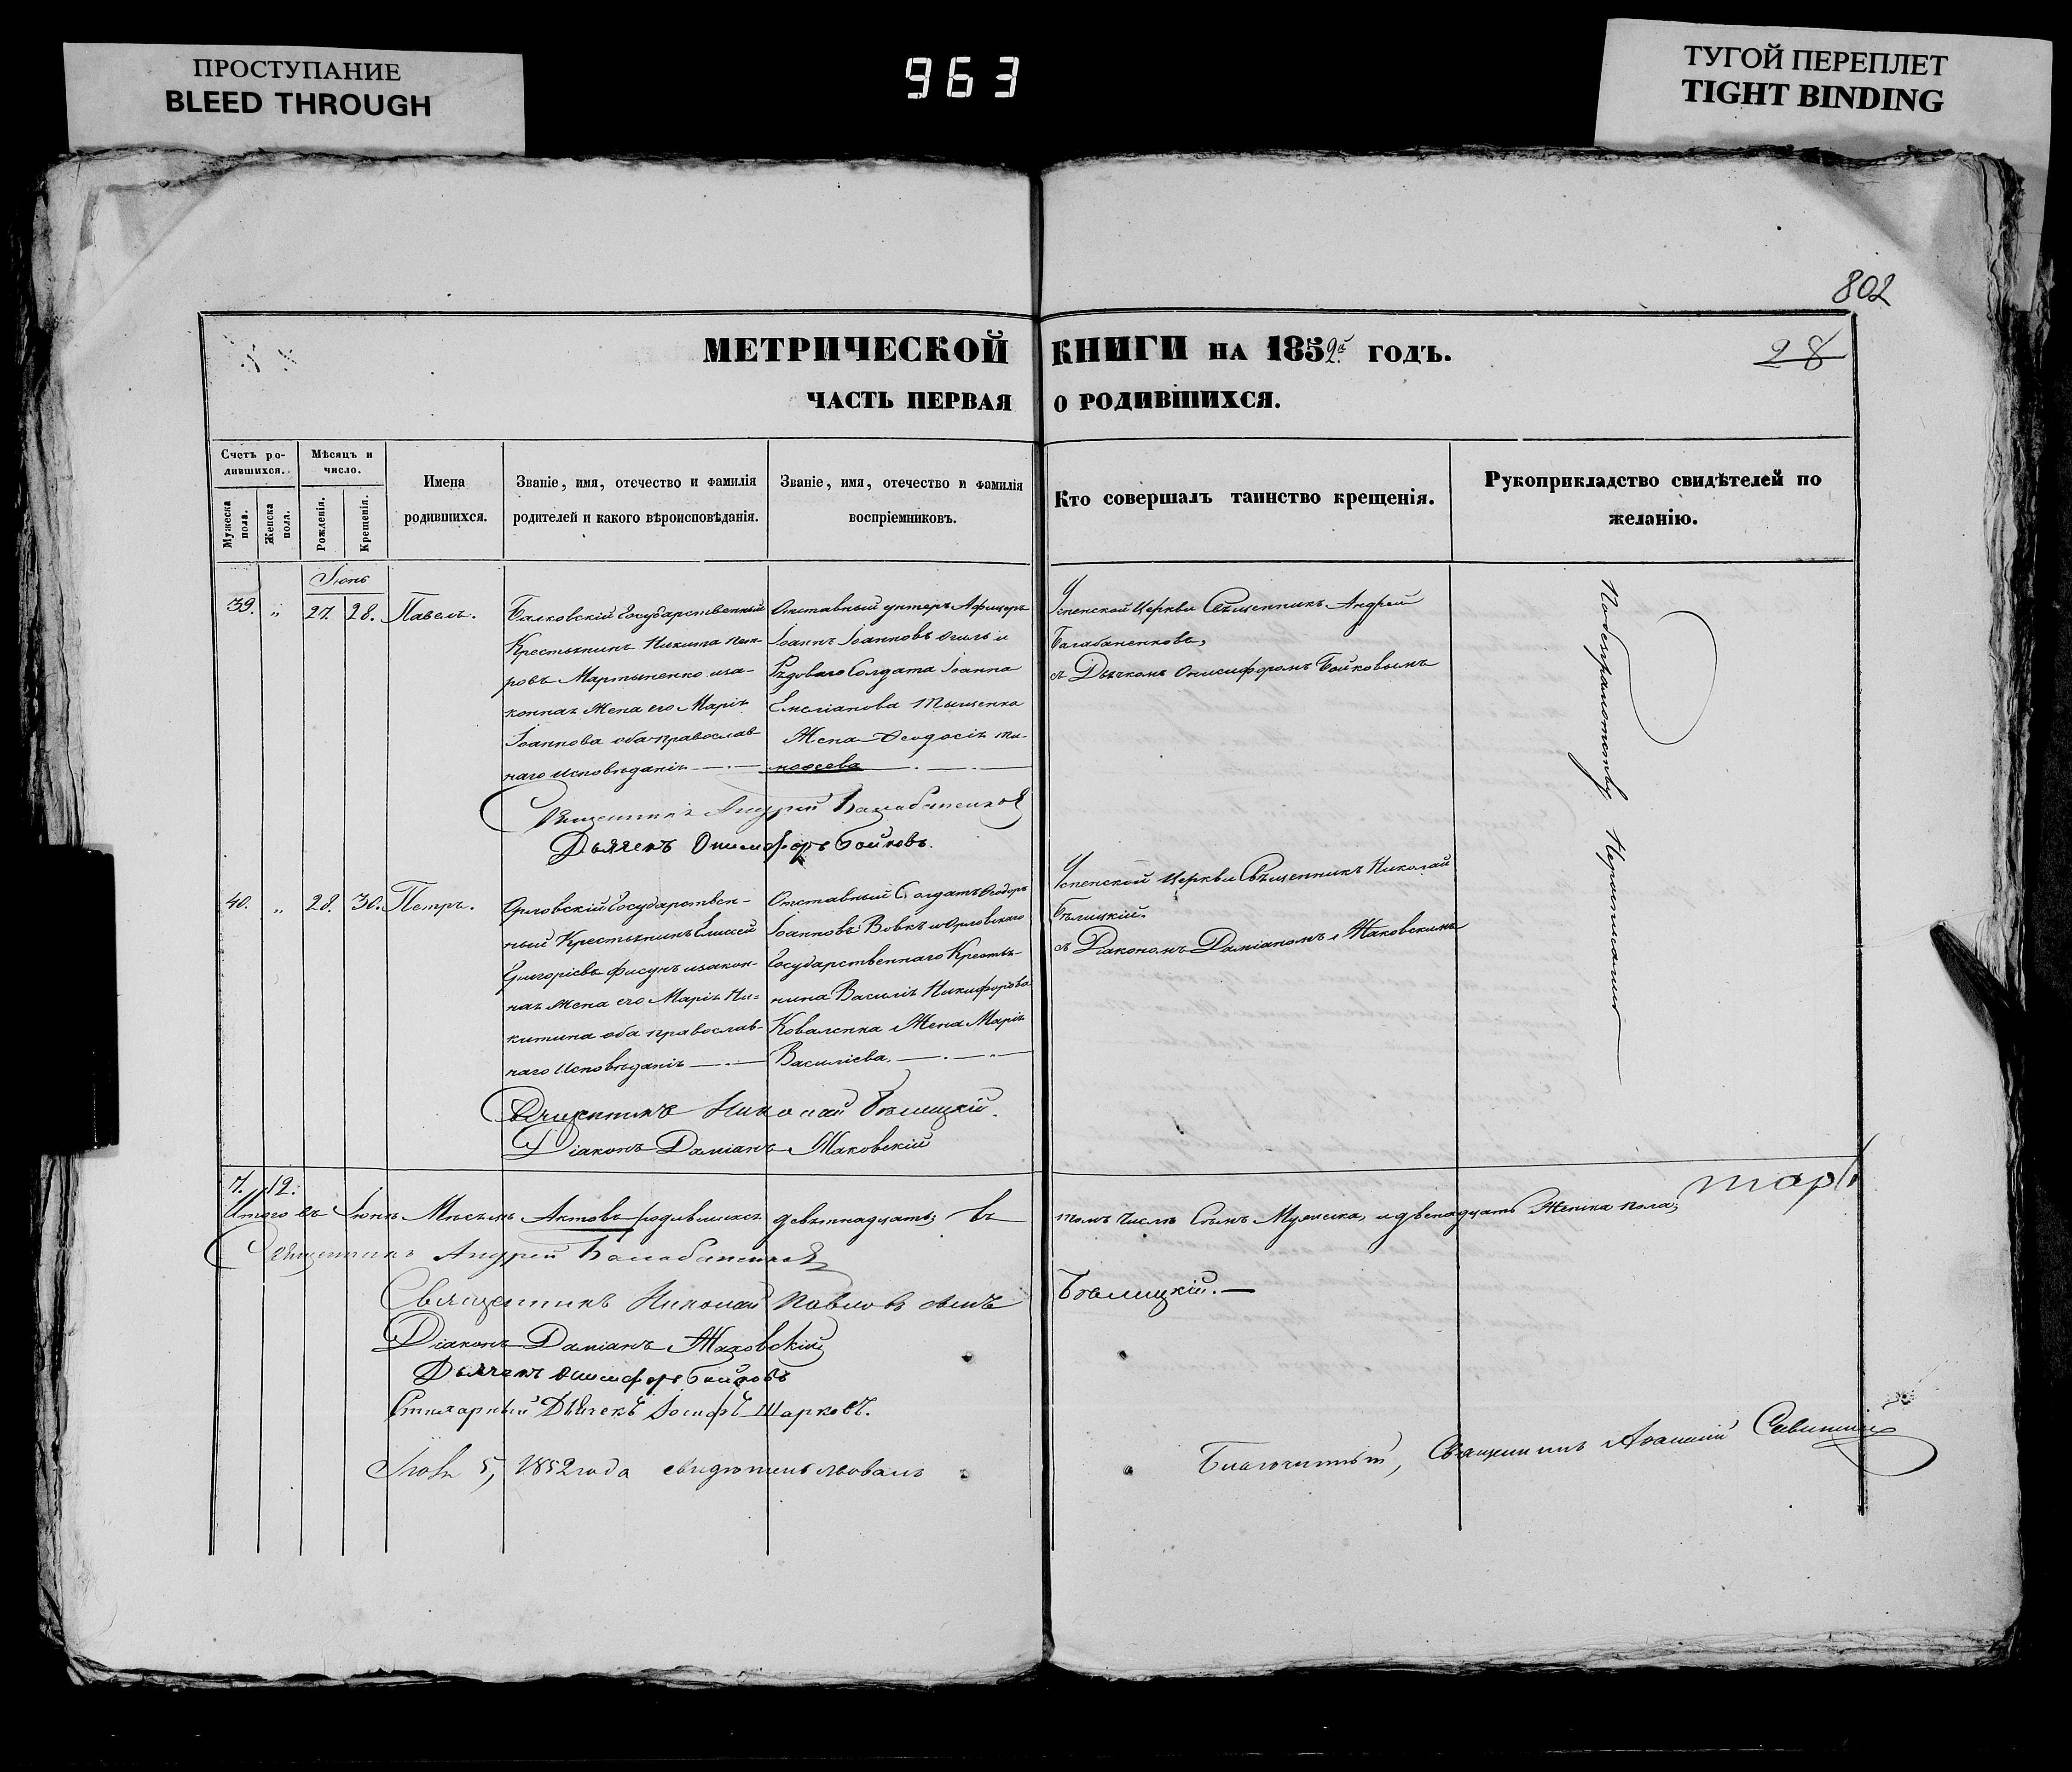 ПРОСТУПАНИЕ
BLEED THROUGH
963
ТУГОЙ ПЕРЕПЛЕТ
TIGHT BINDING
802
МЕТРИЧЕСКОЙ КНИГИ НА 1852й ГОДЪ.
28
ЧАСТЬ ПЕРВАЯ О РОДИВШИХСЯ.
Счетъ ро-
дившихся.
Мужеска пола.
Женска пола.
Мѣсяцъ и
число.
Рожденія.
Крещенія.
Имена
родившихся.
Званіе, имя, отечество и фамилія
родителей и какого вѣроисповѣданія.
Званіе, имя, отечество и фамилія
воспріемниковъ.
Кто совершалъ таинство крещенія.
Рукоприкладство свидѣтелей по
желанію.
Іюнь
39. " 27. 28. Павелъ.
Балковскій Государственный
Крестьянинъ Никита
ровъ Мартыненко иза-
конная Жена его Марія
Іоаннова оба православ
наго исповѣданія
Отставный унтеръ Афицеръ
Іоаннъ Іоанновъ и
Рядоваго Солдата Іоанна
Емеліанова Тыщенка
Жена Феодосія Ти-
мофеева
Успенской Церкви Священникъ Андрей
Балабаненковъ,
съ Дьячкомъ Онисифоромъ Бойковымъ
Священникъ Андрей Балабаненковъ
Дьячекъ Онисифоръ Бойковъ.
40. " 28. 30. Петръ.
Орловскій Государствен-
ный Крестьянинъ Елисей
Григоріевъ Фисунъ изакон-
ная Жена его Марія Ни-
китина оба православ-
наго исповѣданія
Отставный Солдатъ Феодоръ
Іоанновъ Вовкъ и Орловскаго
Государственнаго Крестья-
нина Василія Никифорова
Коваленка Жена Марія
Василіева.
Успенской Церкви Священникъ Николай
Бѣлицкій.
съ Діакономъ Даміаномъ Маковскимъ
Священникъ Николай Бѣлицкій.
Діаконъ Даміанъ Маковскій
По безграмотству
7. 12.
Итого въ Іюнѣ Мѣсяцѣ Актовъ родившихся девятнадцать; въ томъ числѣ Семь Мужеска, и двенадцать Женска пола;
Священникъ Андрей Балабаненковъ
Священникъ Николай Павловъ сынъ Бѣлицкій.
Діаконъ Даміанъ Маковскій
Дьячекъ Онисифоръ Бойковъ
Дьячекъ Іосифъ Шарковъ.
5, 1852 года свидѣтельствовалъ
Благочинный, Священникъ Савинскій